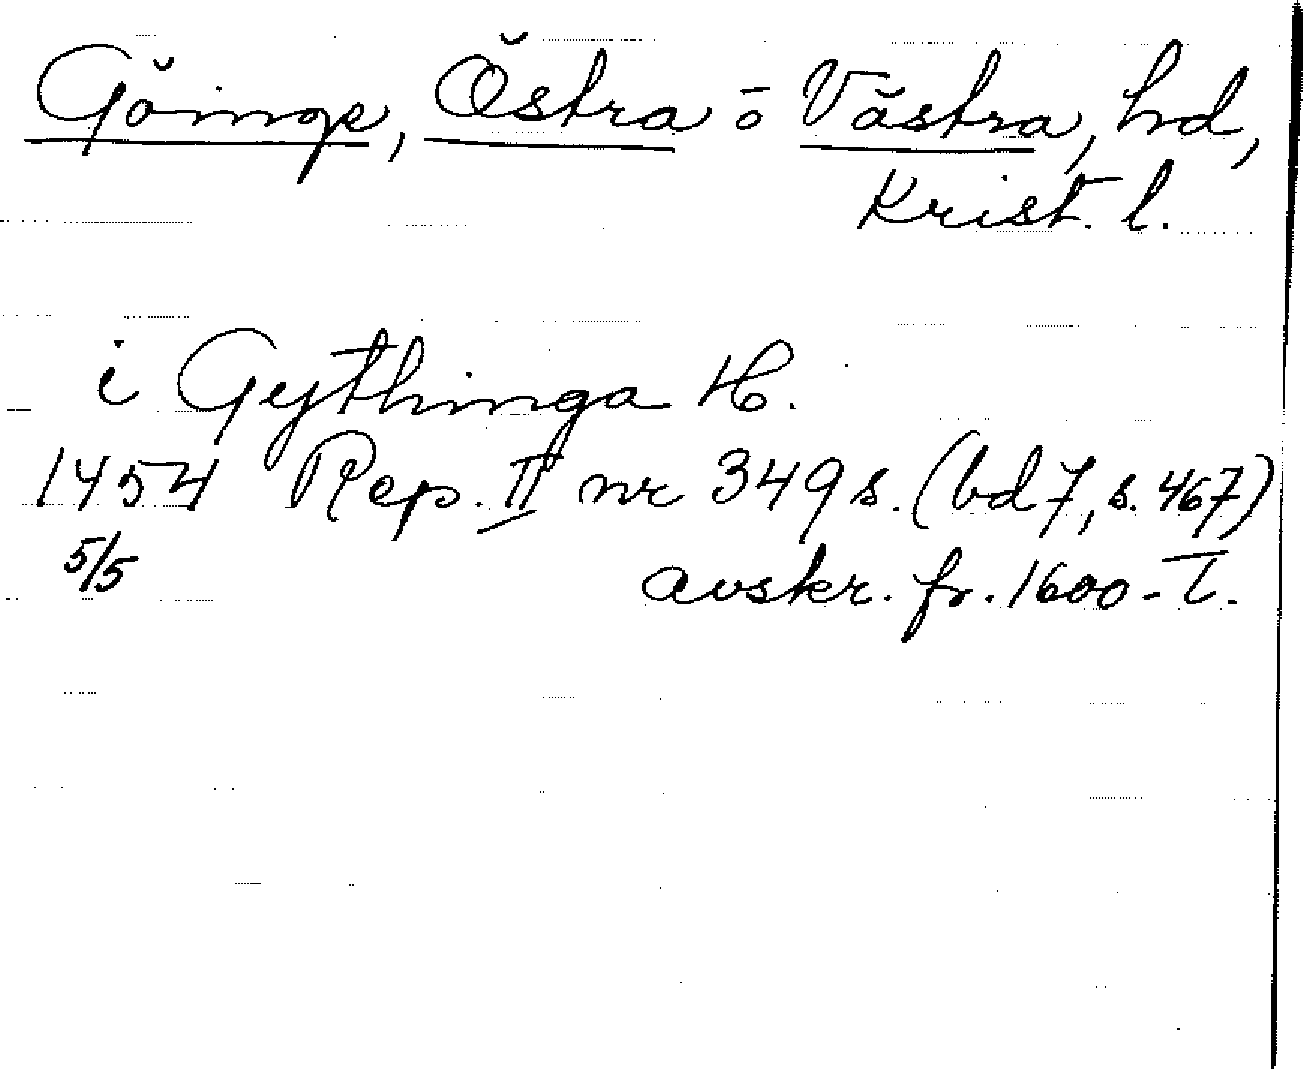 Göinge, Östra ō Västra, hd,
Krist. l.
i Gythinga H.
1454 Rep. II nr 349 s. (bd 7, s. 467)
5/5 avskr. fr. 1600-T.